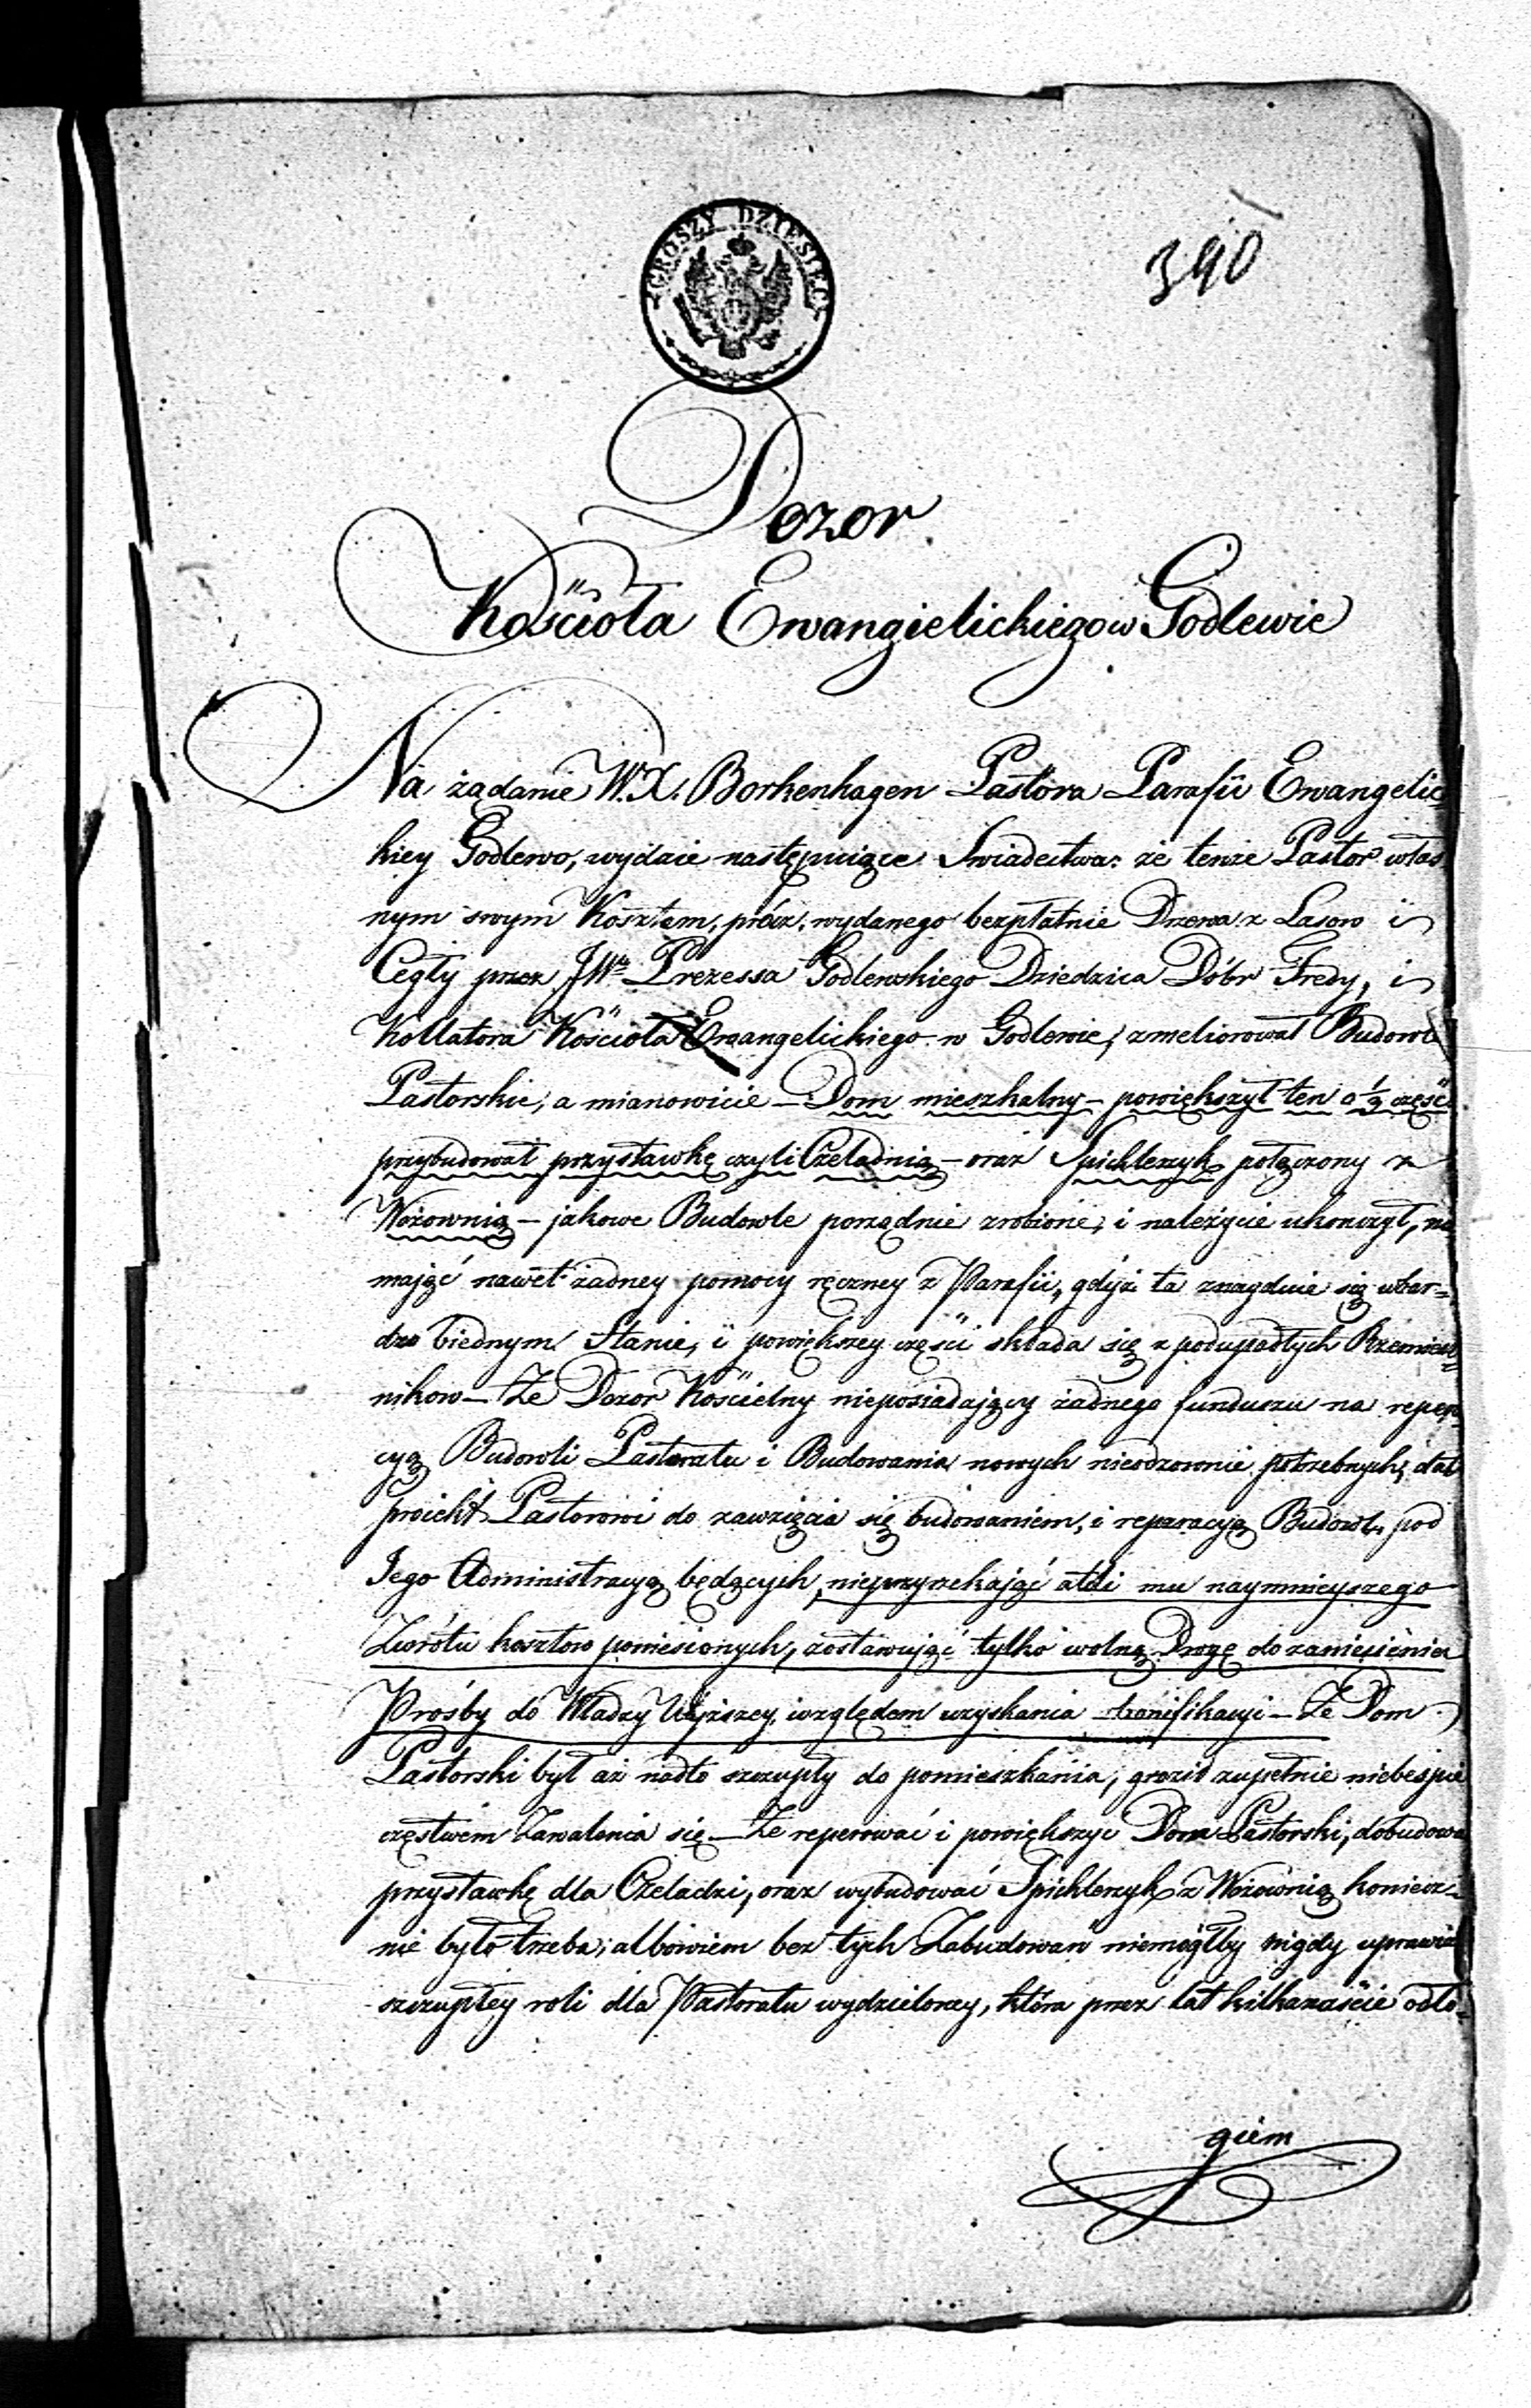 GROSZY DZIESIĘĆ
390
Dozor
Kościoła Ewangielickiego w Godlewie
Na żądanie W. X. Borkenhagen Pastora Parafii Ewangelic-
kiey Godlewo, wydaie następuiące Swiadectwa: że tenże Pastor włas
nym swym Kosztem, prócz wydanego bezpłatnie Drzewa z Lasow i
Cegły przez JWo Prezessa Godlewskiego Dziedzica Dóbr Fredy, i
Kollatora Kościoła Ewangelickiego w Godlewie, zmeliorował Budowle
Pastorskie, a mianowicie – Dom mieszkalny – powiększył ten o 1/2 część
przybudował przystawkę czyli Czeladnią – oraz Spichlerzyk połączony z
Wozownią – jakowe Budowle porządnie zrobione, i należycie ukonczył, nie
mając nawet żadney pomocy ręczney z Parafii, gdyż ta znayduie się wbar=
dzo biednym Stanie, i powiększey części składa się z podupadłych Rzemieśl=
nikow – Że Dozor Kościelny nieposiadający żadnego funduszu na repera
cyą Budowli Pastoratu i Budowania nowych nieodzownie potrzebnych, dał
proiekt Pastorowi do zawzięcia się budowaniem, i reparacyą Budowli pod
Jego Administracyą będących, nieprzyrzekając atoli mu naymnieyszego
Zwrótu kosztow poniesionych, zostawując tylko wolną Drogę do zaniesienia
Prośby do Władzy Wyższey, względem uzyskania bonifikacyi – Że Dom
Pastorski był aż nadto szczupły do pomieszkania, groził zupełnie niebespie
częstwem Zawalenia się – Że reperować i powiększyć Dom Pastorski, dobudować
przystawkę dla Czeladzi, oraz wybudować Spichlerzyk z Wozownią koniecz=
nie było trzeba, albowiem bez tych Zabudowań niemógłby nigdy uprawiać
szczupłey roli dla Pastoratu wydzieloney, która przez lat kilkanaście odło=
giem